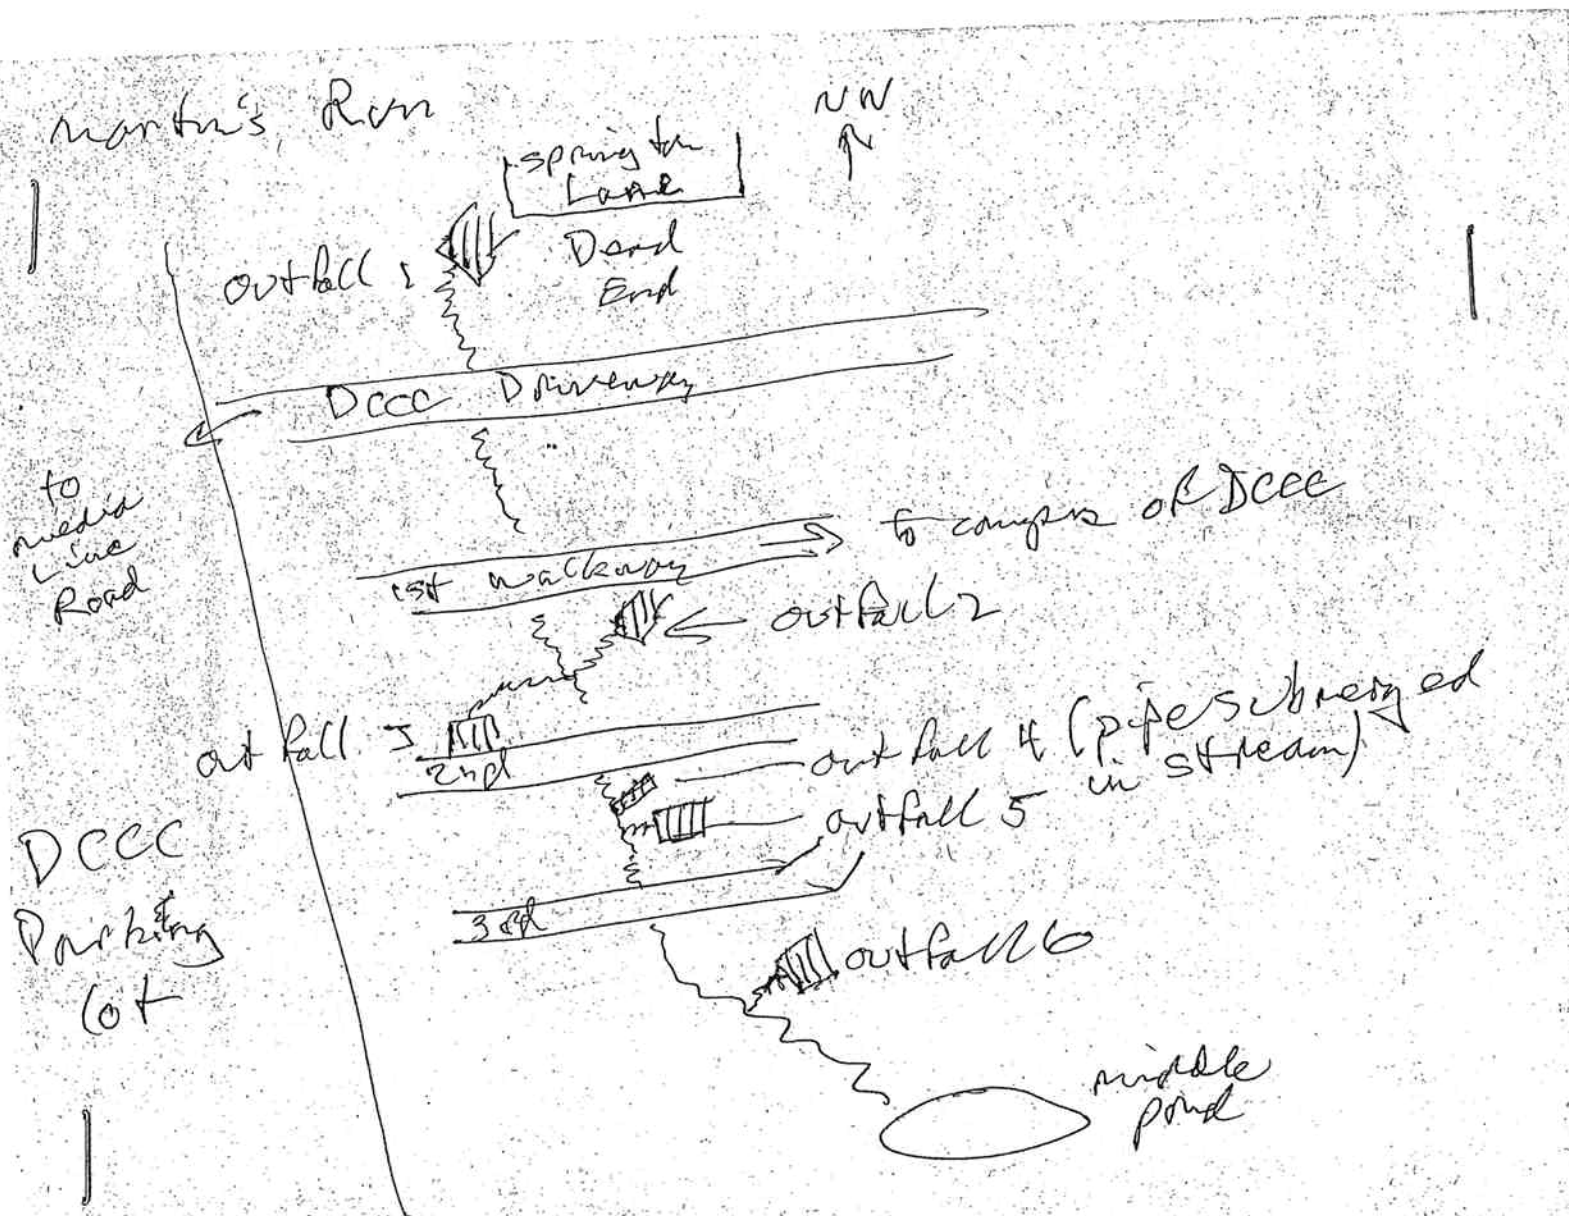 Martin's Run
NW
Springton
Lane
Dead
End
outfall 1
DCCC Driveway
to
media
Line
Road
to campus of DCCC
1st walkway
outfall 2
outfall 3
2nd
outfall 4 (pipe submerged
in stream)
outfall 5
DCCC
Parking
Lot
3rd
outfall 6
middle
pond